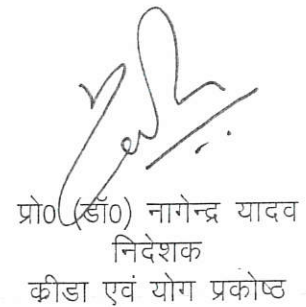 प्रो0 (डॉ0) नागेन्द्र यादव
निदेशक
कीडा एवं योग प्रकोष्ठ